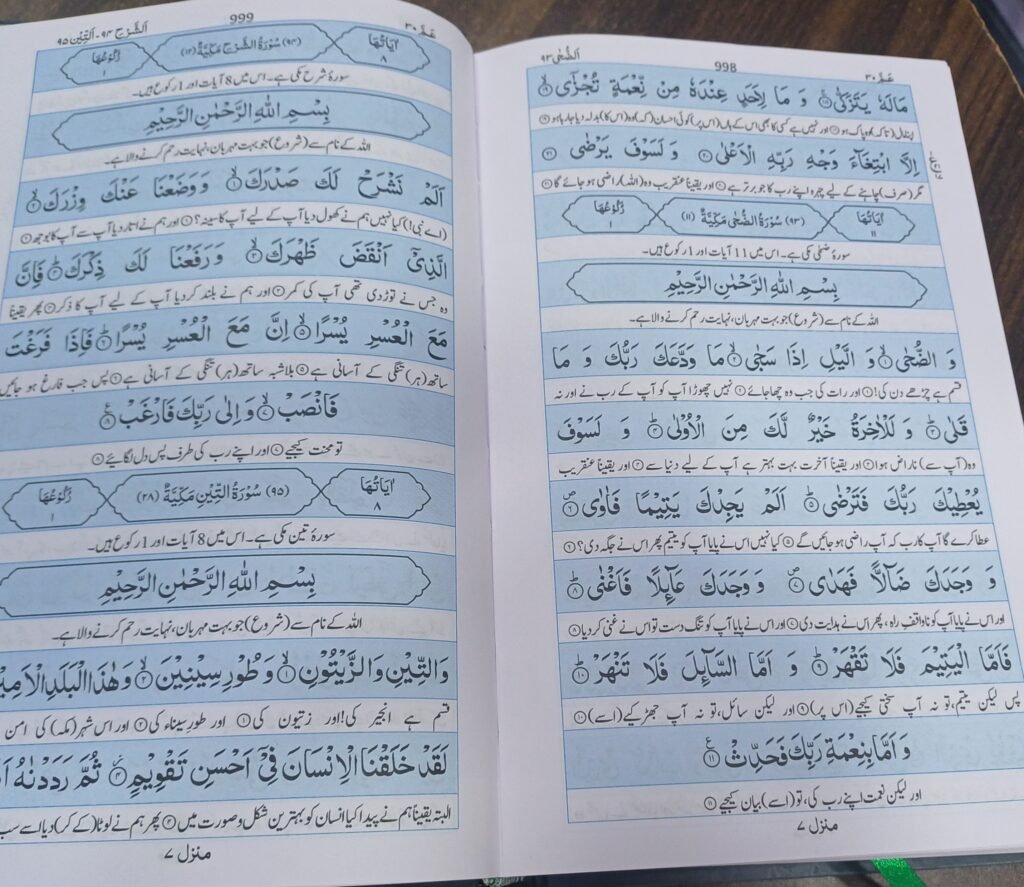 اَلضُّحٰى ٩٣
998
عَمَّ ٣٠
مَالَهٗ يَتَزَكّٰى ۝١٨ وَ مَا لِاَحَدٍ عِنْدَهٗ مِنْ نِّعْمَةٍ تُجْزٰٓى ۝١٩
اپنا مال (تاکہ) وہ پاک ہو ۝١٨ اور نہیں ہے کسی کا بھی اس کے ہاں (اس پر) کوئی احسان (کہ) وہ (اس کا) بدلہ دیا جا رہا ہو ۝١٩
اِلَّا ابْتِغَآءَ وَجْهِ رَبِّهِ الْاَعْلٰى ۝٢٠ وَ لَسَوْفَ يَرْضٰى ۝٢١
مگر (صرف) چاہنے کے لیے چہرہ اپنے رب کا جو برتر ہے ۝٢٠ اور یقیناً عنقریب وہ (اللہ) راضی ہو جائے گا ۝٢١
اٰيَاتُهَا ١١
(٩٣) سُوْرَةُ الضُّحٰى مَكِّيَّةٌ (١١)
رُكُوْعُهَا ١
سورۂ ضحٰی مکی ہے۔ اس میں 11 آیات اور 1 رکوع ہیں۔
بِسْمِ اللّٰهِ الرَّحْمٰنِ الرَّحِيْمِ
اللہ کے نام سے (شروع) جو بہت مہربان، نہایت رحم کرنے والا ہے۔
وَ الضُّحٰى ۝١ وَ الَّيْلِ اِذَا سَجٰى ۝٢ مَا وَدَّعَكَ رَبُّكَ وَ مَا
قسم ہے چڑھے دن کی! ۝١ اور رات کی جب وہ چھا جائے ۝٢ نہیں چھوڑا آپ کو آپ کے رب نے اور نہ
قَلٰى ۝٣ وَ لَلْاٰخِرَةُ خَيْرٌ لَّكَ مِنَ الْاُوْلٰى ۝٤ وَ لَسَوْفَ
وہ (آپ سے) ناراض ہوا ۝٣ اور یقیناً آخرت بہت بہتر ہے آپ کے لیے دنیا سے ۝٤ اور یقیناً عنقریب
يُعْطِيْكَ رَبُّكَ فَتَرْضٰى ۝٥ اَلَمْ يَجِدْكَ يَتِيْمًا فَاٰوٰى ۝٦
عطا کرے گا آپ کا رب کہ آپ راضی ہو جائیں گے ۝٥ کیا نہیں اس نے پایا آپ کو یتیم پھر اس نے جگہ دی؟ ۝٦
وَ وَجَدَكَ ضَآلًّا فَهَدٰى ۝٧ وَ وَجَدَكَ عَآىِٕلًا فَاَغْنٰى ۝٨
اور اس نے پایا آپ کو ناواقفِ راہ، پھر اس نے ہدایت دی ۝٧ اور اس نے پایا آپ کو تنگ دست تو اس نے غنی کر دیا ۝٨
فَاَمَّا الْيَتِيْمَ فَلَا تَقْهَرْ ۝٩ وَ اَمَّا السَّآىِٕلَ فَلَا تَنْهَرْ ۝١٠
پس لیکن یتیم، تو نہ آپ سختی کیجیے (اس پر) ۝٩ اور لیکن سائل، تو نہ آپ جھڑکیے (اسے) ۝١٠
وَ اَمَّا بِنِعْمَةِ رَبِّكَ فَحَدِّثْ ۝١١
اور لیکن نعمت اپنے رب کی، تو (اسے) بیان کیجیے ۝١١
منزل ٧
اَلشَّرْح ٩٤-اَلتِّيْن ٩٥
999
عَمَّ ٣٠
اٰيَاتُهَا ٨
(٩٤) سُوْرَةُ الشَّرْحِ مَكِّيَّةٌ (١٢)
رُكُوْعُهَا ١
سورۂ شرح مکی ہے۔ اس میں 8 آیات اور 1 رکوع ہیں۔
بِسْمِ اللّٰهِ الرَّحْمٰنِ الرَّحِيْمِ
اللہ کے نام سے (شروع) جو بہت مہربان، نہایت رحم کرنے والا ہے۔
اَلَمْ نَشْرَحْ لَكَ صَدْرَكَ ۝١ وَ وَضَعْنَا عَنْكَ وِزْرَكَ ۝٢
(اے نبی!) کیا نہیں ہم نے کھول دیا آپ کے لیے آپ کا سینہ؟ ۝١ اور ہم نے اتار دیا آپ سے آپ کا بوجھ ۝٢
الَّذِيْٓ اَنْقَضَ ظَهْرَكَ ۝٣ وَ رَفَعْنَا لَكَ ذِكْرَكَ ۝٤ فَاِنَّ
وہ جس نے توڑ دی تھی آپ کی کمر ۝٣ اور ہم نے بلند کر دیا آپ کے لیے آپ کا ذکر ۝٤ پھر یقیناً
مَعَ الْعُسْرِ يُسْرًا ۝٥ اِنَّ مَعَ الْعُسْرِ يُسْرًا ۝٦ فَاِذَا فَرَغْتَ
ساتھ (ہر) تنگی کے آسانی ہے ۝٥ بلاشبہ ساتھ (ہر) تنگی کے آسانی ہے ۝٦ پس جب فارغ ہو جائیں
فَانْصَبْ ۝٧ وَ اِلٰى رَبِّكَ فَارْغَبْ ۝٨
تو محنت کیجیے ۝٧ اور اپنے رب کی طرف پس دل لگائیے ۝٨
اٰيَاتُهَا ٨
(٩٥) سُوْرَةُ التِّيْنِ مَكِّيَّةٌ (٢٨)
رُكُوْعُهَا ١
سورۂ تین مکی ہے۔ اس میں 8 آیات اور 1 رکوع ہیں۔
بِسْمِ اللّٰهِ الرَّحْمٰنِ الرَّحِيْمِ
اللہ کے نام سے (شروع) جو بہت مہربان، نہایت رحم کرنے والا ہے۔
وَ التِّيْنِ وَ الزَّيْتُوْنِ ۝١ وَ طُوْرِ سِيْنِيْنَ ۝٢ وَ هٰذَا الْبَلَدِ الْاَمِيْ
قسم ہے انجیر کی! اور زیتون کی ۝١ اور طورِ سیناء کی ۝٢ اور اس شہر (مکہ) کی امن
لَقَدْ خَلَقْنَا الْاِنْسَانَ فِيْٓ اَحْسَنِ تَقْوِيْمٍ ۝٤ ثُمَّ رَدَدْنٰهُ اَ
البتہ یقیناً ہم نے پیدا کیا انسان کو بہترین شکل و صورت میں ۝٤ پھر ہم نے لوٹا (کے کر) دیا اسے سب
منزل ٧